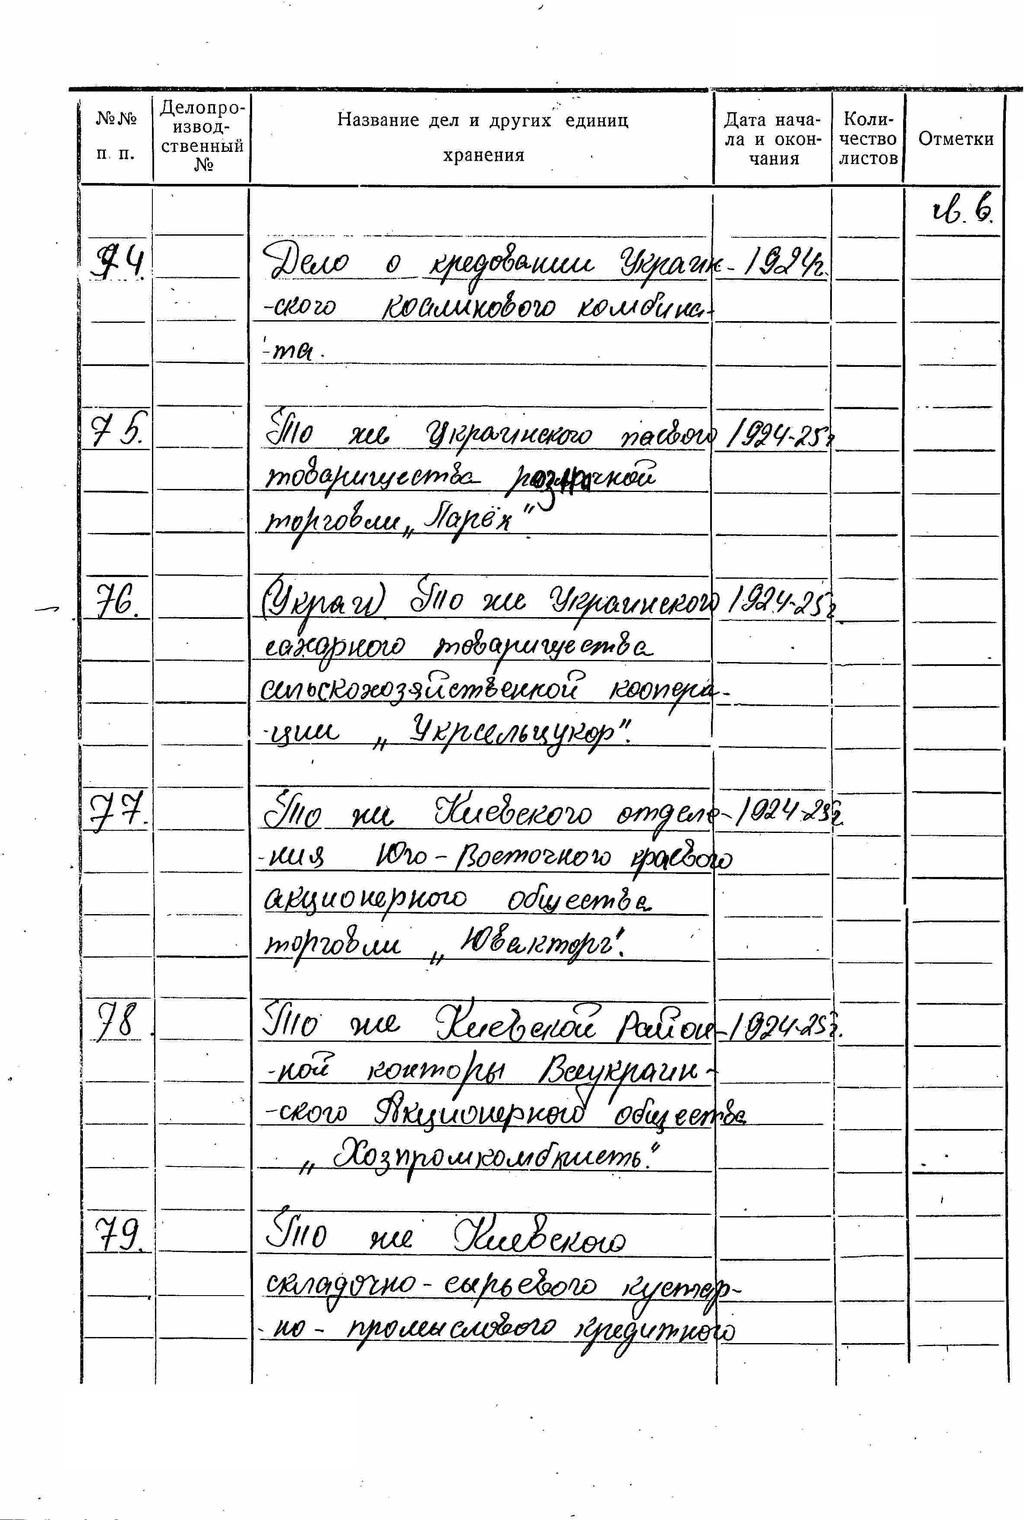 №№ п. п. Делопроизводственный № Название дел и других единиц хранения Дата начала и окончания Количество листов Отметки
74. Дело о кредовании Украин- 1924г.
-ского каолинового комбина-
-та.
75. То же Украинского паевого 1924-25г
товарищества розничной
торговли „Ларёк".
76. (Украи) То же Украинского 1924-25г
сахарного товарищества
сельскохозяйственной коопера-
-ции „Укрсельцукор".
77. То же Киевского отделе- 1924-25г.
-ния Юго-Восточного краевого
акционерного общества
торговли „Ювакторг".
78. То же Киевской Район- 1924-25г.
-ной конторы Всеукраин-
-ского Акционерного общества
„Хозпромкомбкисть."
79. То же Киевского
складочно-сырьевого кустар-
-но-промыслового кредитного